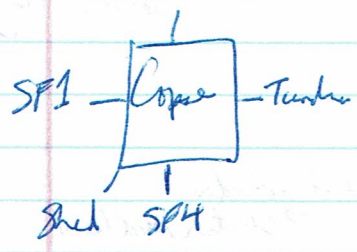 SF1 Copse Tundra
Shed SF4